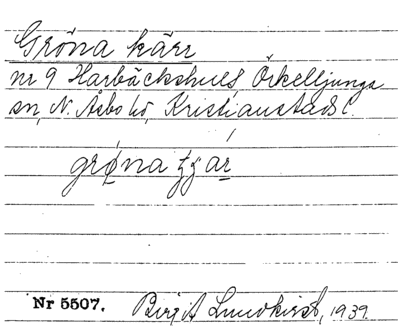 Gröna kärr
nr 9 Harbäckshult, Örkelljunga
sn, N. Åsbo hd, Kristianstads l.
grøna
Nr 5507. Birgit Lundkvist, 1939.